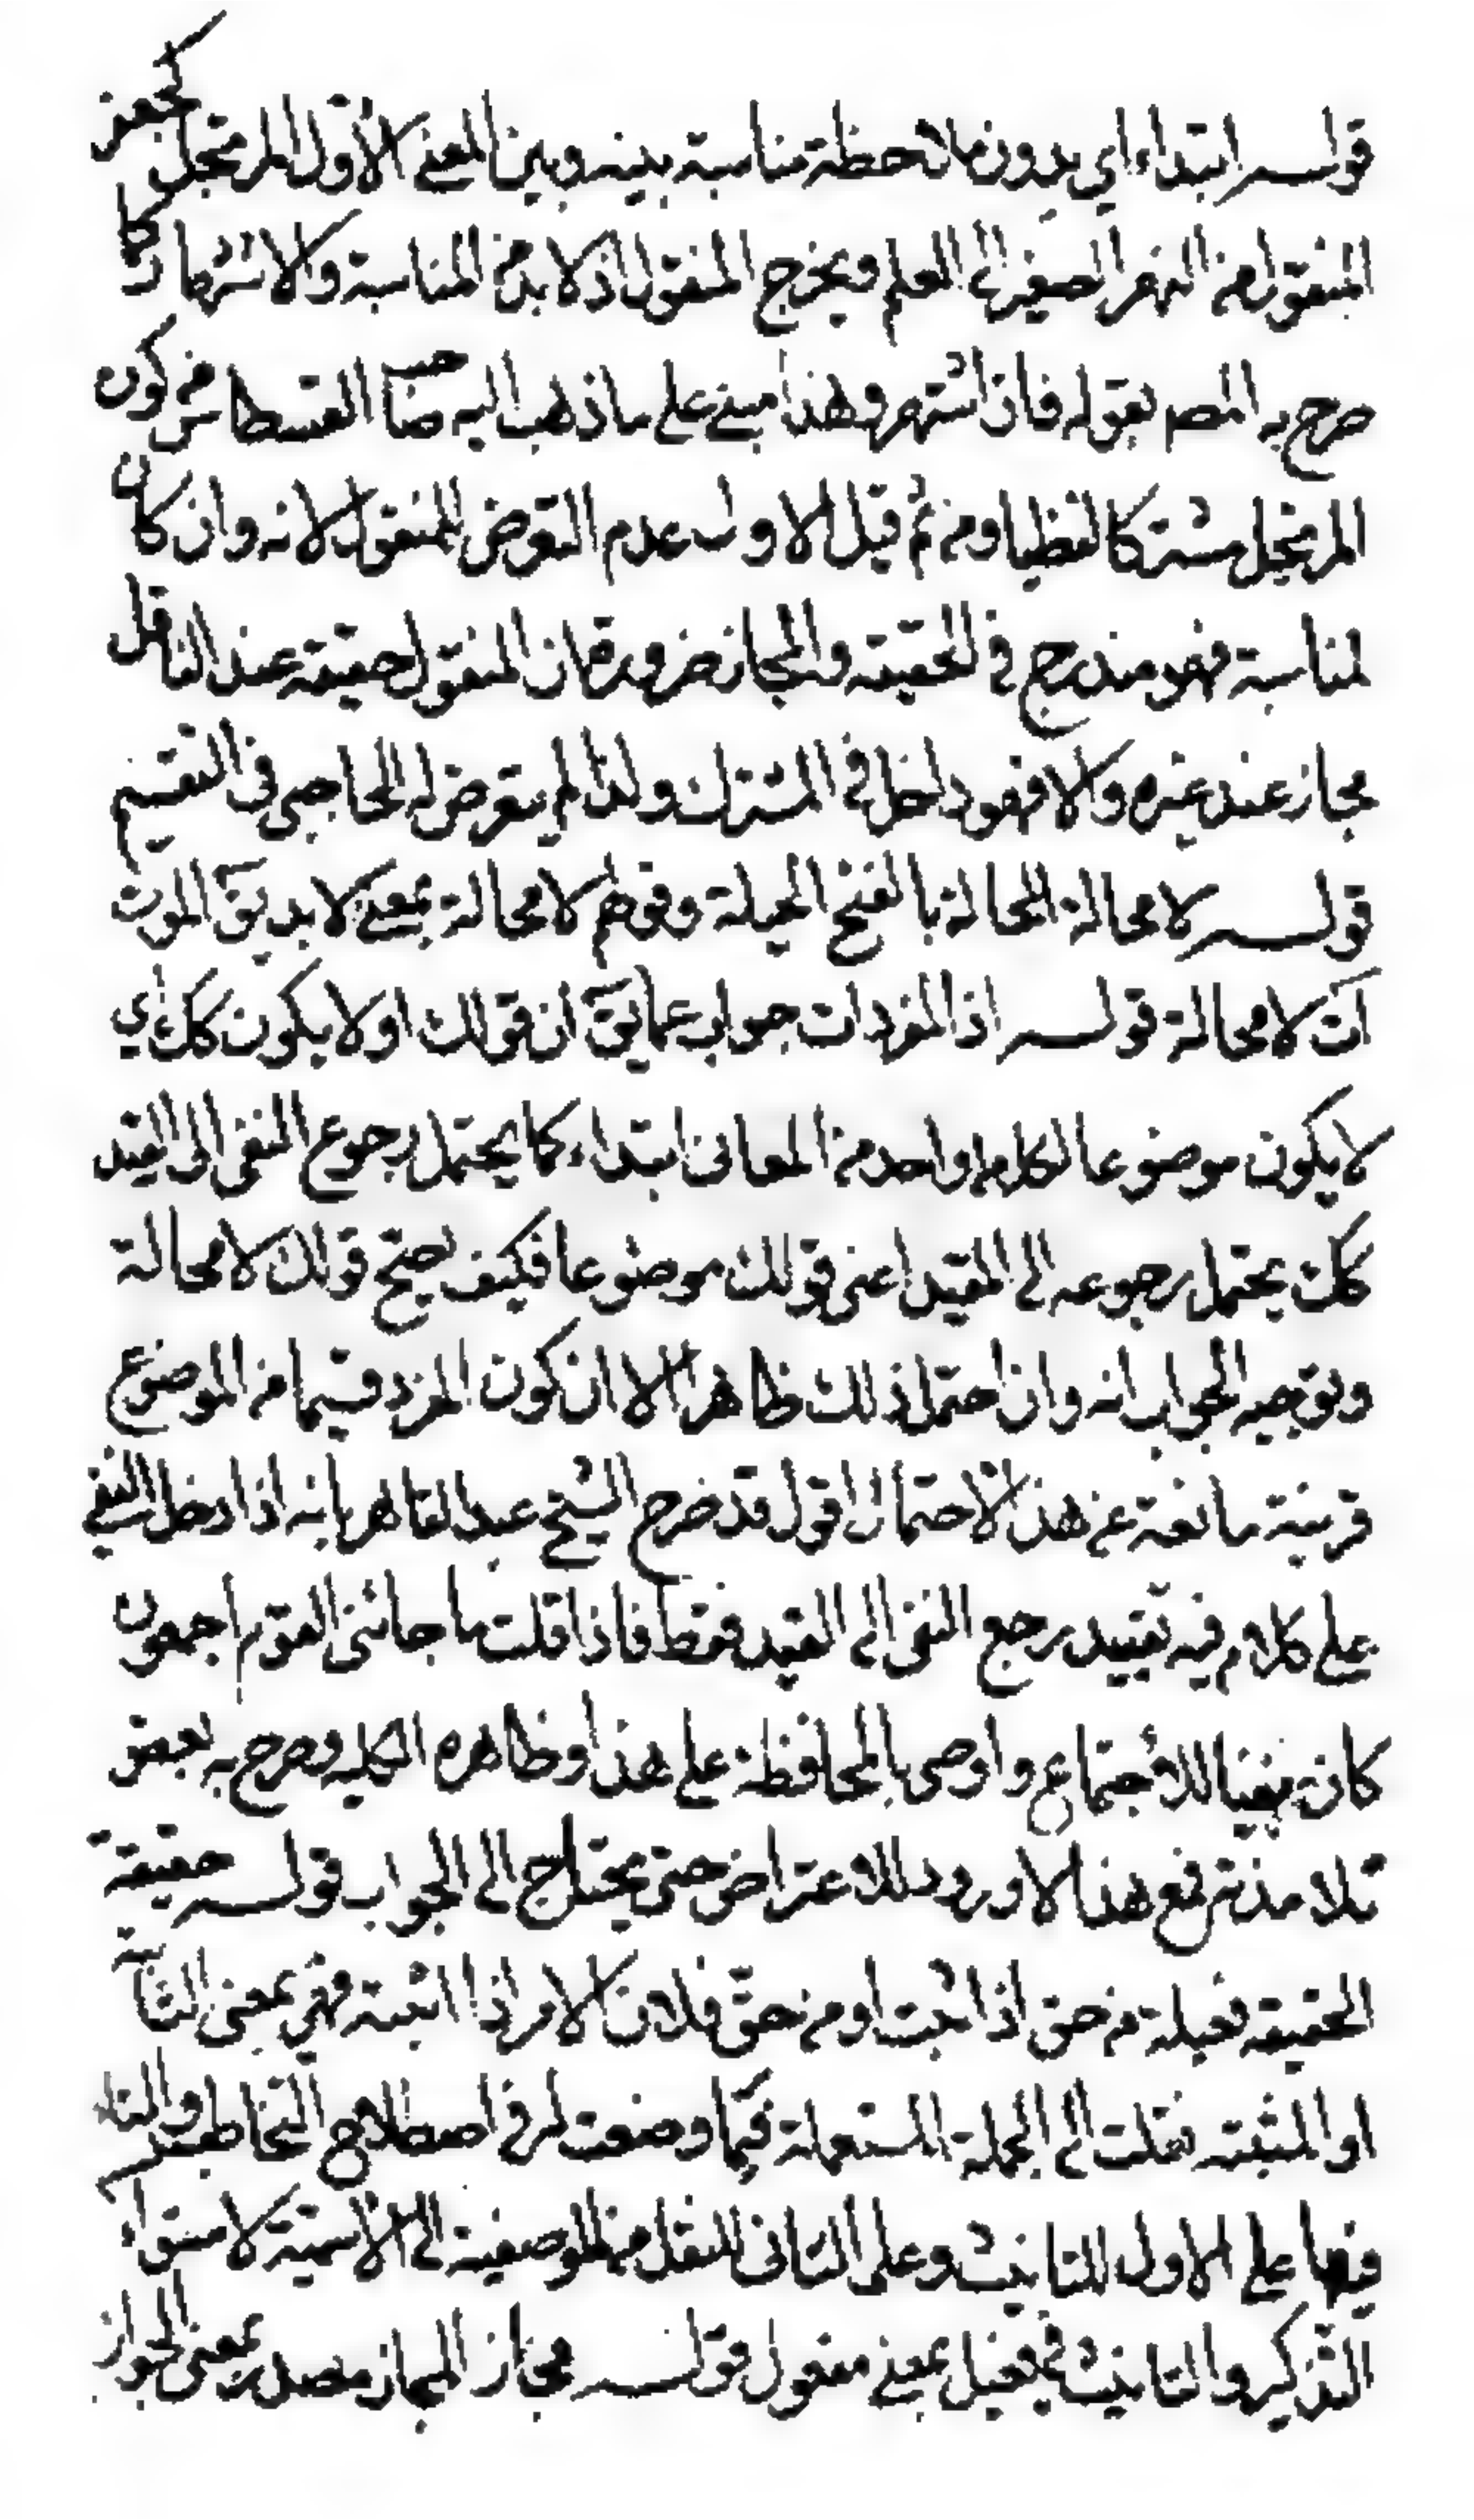 قوله ابتداء اي بدون ملاحظة مناسبة بينه وبين المعنى الاول المرتجل كجعفر
المنقول من النهر الصغير الى العلم ويخرج المنقول اذ لا بد من المناسبة والاشتهار كما
صرح به المصـ بقوله فان اشتهر وهذا مبني على ما ذهب اليه صـا القسطا من كون
المرتجل مشتركا لفظيا ومن ثم قيل الاولى عدم التعرض للمنقول لانه وان كان
لمناسبة فهو مندرج في الحقيقة والمجاز ضرورة ان المنقول حقيقة عند الناقل
مجاز عند غيره والا فهو داخل في المشترك ولذا لم يتعرض له الحاجبي في التقسيم
قوله لا محالة المحالة بالفتح الحيلة وقولهم لا محالة بمعنى لا بد يقـ الموت
آت لا محالة قوله اذ المفردات جواب عما يقـ ان قولك او لا يكون كك اي
لا يكون موضوعا لكل واحد من المعاني ابتداء كما يحتمل رجوع النفي الى القيد
كك يحتمل رجوعه الى المقيد اعني قولك موضوعا فكيف يصح قولك لا محالة
وتوجيه الجواب انه وان احتمل ذلك ظاهرا الا ان كون المفرد قسيما من الموضوع
قرينة مانعة عن هذا الاحتمال اقول قد صرح الشيخ عبد القاهر بانه اذا دخل النفي
على كلام فيه تقييد رجع النفي الى القيد فقط فاذا قلت ما جائني القوم اجمعون
كان نفيا للاجتماع واوصى بالمحافظة على هذا وظاهره الكلية وصرح به بعض
تلامذته فمع هذا لا ورود للاعتراض حتى يحتاج الى الجواب قوله حقيقة
الحقيقة فعيلة من حق اذا ثبت او من حق فلان الامر اذا اثبته فهي بمعنى الثابتة
او المثبتة نقلت الى الجملة المستعملة فيما وضعت له في اصطلاح التخاطب والتاء
فيها على الاول للتانيث وعلى الثاني للنقل من الوصفية الى الاسمية لاستواء
التذكير والتانيث في فعيل بمعنى مفعول قوله مجاز المجاز مصدر بمعنى الجواز